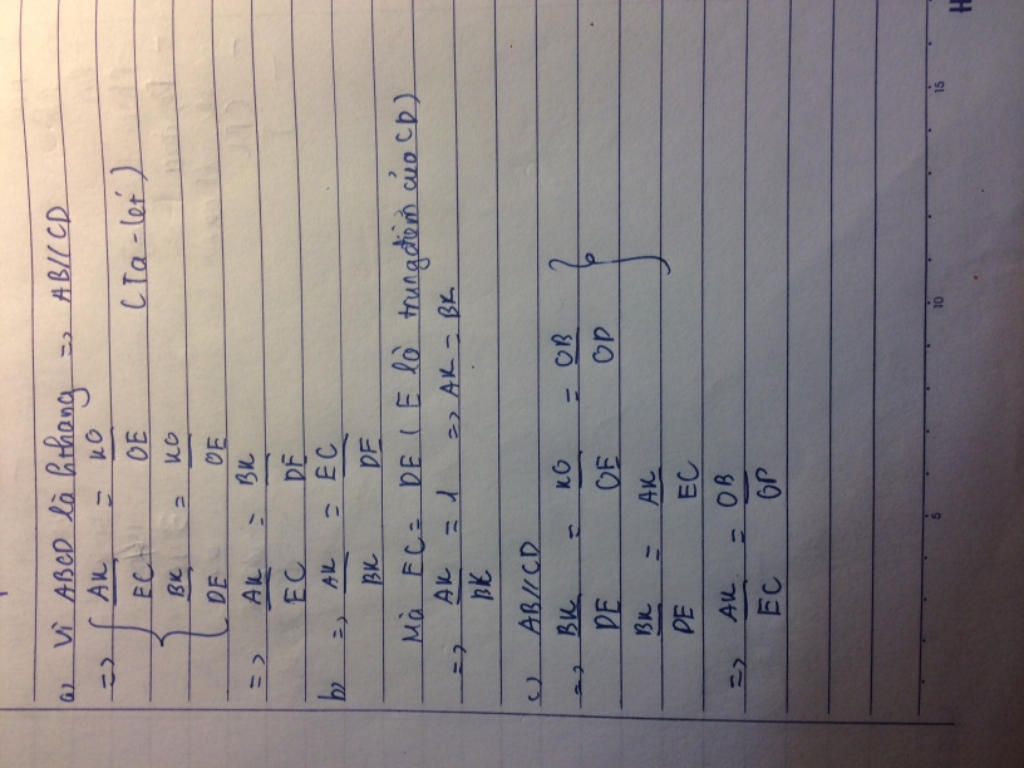 a) Vì ABCD là hthang => AB//CD
=> { AK/EC = KO/OE
BK/DE = KO/OE (Ta-lét)
=> AK/EC = BK/DE
b) => AK/BK = EC/DE
Mà EC = DE ( E là trung điểm của CD)
=> AK/BK = 1 => AK = BK
c) AB//CD
=> BK/DE = KO/OE = OB/OD }
BK/DE = AK/EC
=> AK/EC = OB/OD
5 10 15
H